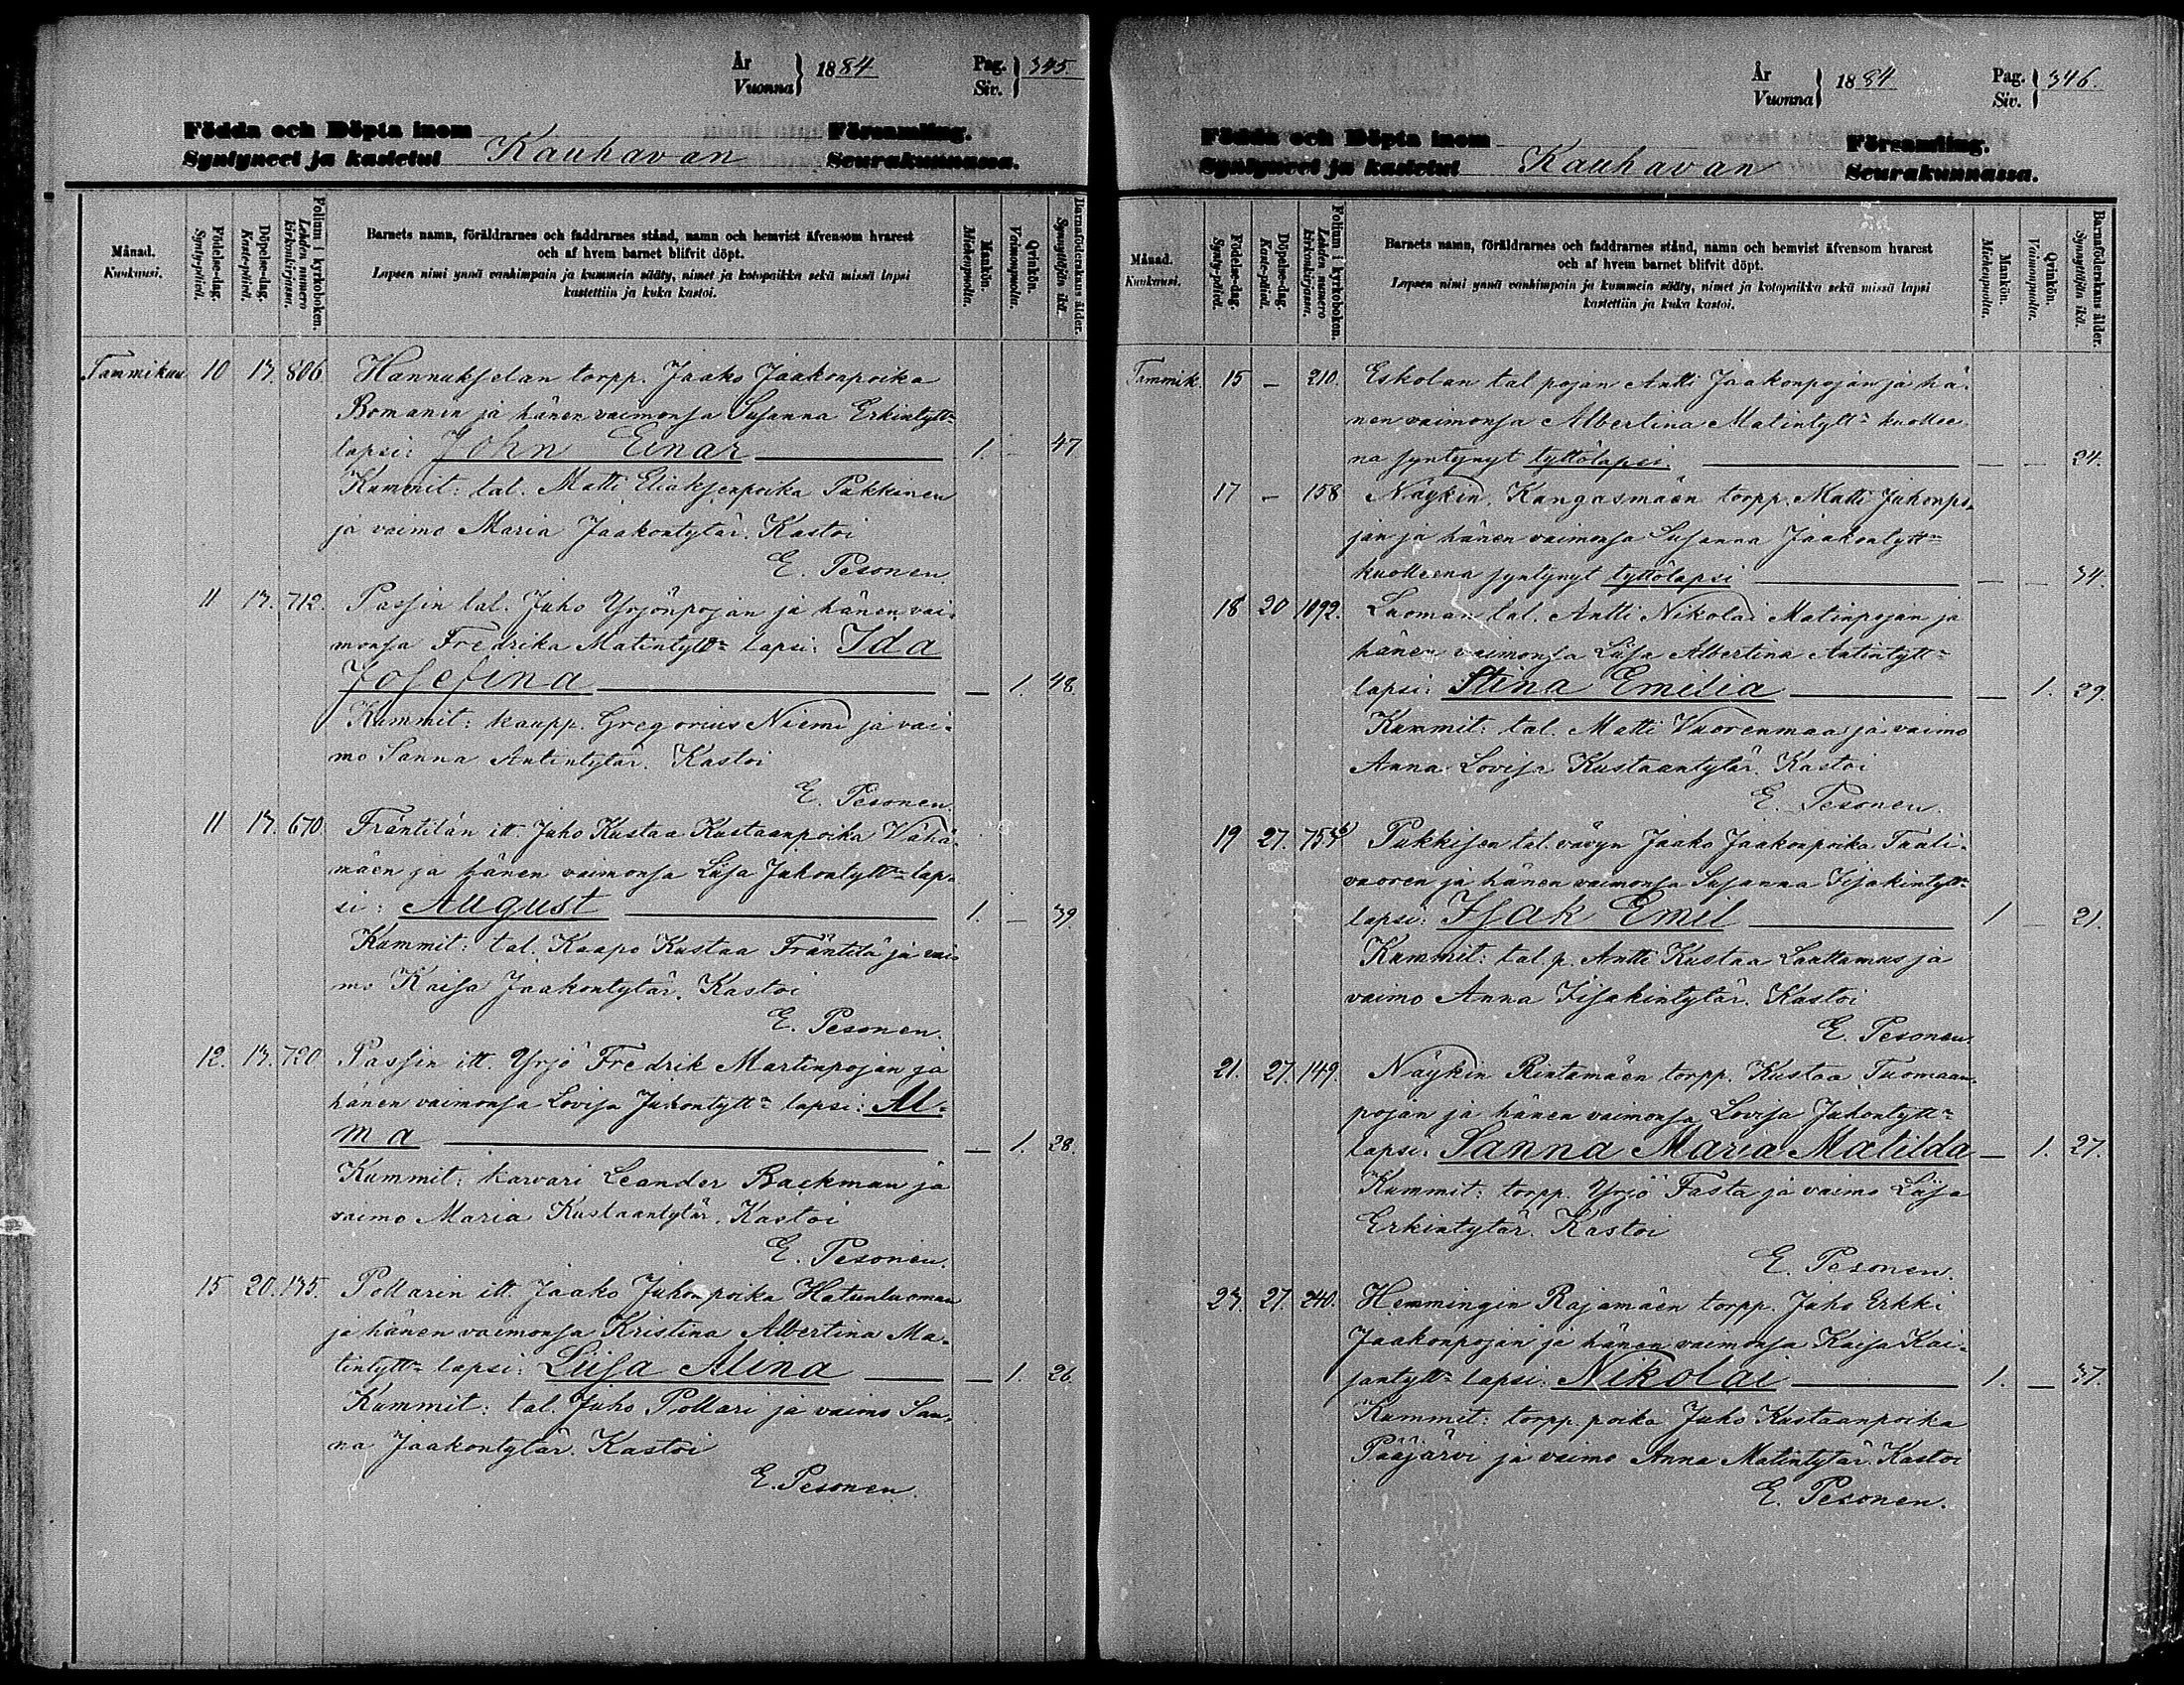 År
Vuonna } 1884
Pag.
Siv. } 345
Födda och Döpta inom Församling.
Syntyneet ja kastetut Kauhavan Seurakunnassa.
Månad.
Kuukausi.
Födelse-dag.
Synty-päivä.
Döpelse-dag.
Kaste-päivä.
Folium i kyrkoboken.
Lehden numero kirkonkirjassa.
Barnets namn, föräldrarnes och faddrarnes stånd, namn och hemvist äfvensom hvarest
och af hvem barnet blifvit döpt.
Lapsen nimi ynnä vanhimpain ja kummein sääty, nimet ja kotopaikka sekä missä lapsi
kastettiin ja kuka kastoi.
Mankön.
Miehenpuolia.
Qvinkön.
Vaimonpuolia.
Barnaföderskans ålder.
Synnyttäjän ikä.
Tammikuu 10 13. 806. Hannukselan torpp. Jaako Jaakonpoika
Bomanin ja hänen vaimonsa Susanna Erkintytt=
lapsi: John Einar 1. — 47
Kummit: tal. Matti Eliaksenpoika Pukkinen
ja vaimo Maria Jaakontytär. Kastoi
E. Pesonen.
11 13. 712. Passin tal. Juho Yrjönpojan ja hänen vai-
monsa Fredrika Matintytt= lapsi: Ida
Josefina — 1. 48.
Kummit: kaupp. Gregorius Niemi ja vai-
mo Sanna Antintytär. Kastoi
E. Pesonen.
11 13. 670. Fräntilän itt. Juho Kustaa Kustaanpoika Vähä-
mäen ja hänen vaimonsa Liisa Juhontytt= lap-
si: August 1. — 39.
Kummit: tal. Kaapo Kustaa Fräntilä ja vai-
mo Kaisa Jaakontytär. Kastoi
E. Pesonen.
12. 13. 720. Passin itt. Yrjö Fredrik Martinpojan ja
hänen vaimonsa Lovisa Juhontytt= lapsi: Al-
ma — 1. 28.
Kummit: karvari Leander Backman ja
vaimo Maria Kustaantytär. Kastoi
E. Pesonen.
15 20. 135. Pollarin itt. Jaako Juhonpoika Hatunluoman
ja hänen vaimonsa Kristina Albertina Ma-
tintytt= lapsi: Liisa Alina — 1. 26
Kummit: tal. Juho Pollari ja vaimo San-
na Jaakontytär. Kastoi
E. Pesonen.
År
Vuonna } 1884
Pag.
Siv. } 346.
Födda och Döpta inom Församling.
Syntyneet ja kastetut Kauhavan Seurakunnassa.
Månad.
Kuukausi.
Födelse-dag.
Synty-päivä.
Döpelse-dag.
Kaste-päivä.
Folium i kyrkoboken.
Lehden numero kirkonkirjassa.
Barnets namn, föräldrarnes och faddrarnes stånd, namn och hemvist äfvensom hvarest
och af hvem barnet blifvit döpt.
Lapsen nimi ynnä vanhimpain ja kummein sääty, nimet ja kotopaikka sekä missä lapsi
kastettiin ja kuka kastoi.
Mankön.
Miehenpuolia.
Qvinkön.
Vaimonpuolia.
Barnaföderskans ålder.
Synnyttäjän ikä.
Tammik. 15 — 210. Eskolan tal pojan Antti Jaakonpojan ja hä-
nen vaimonsa Albertina Matintytt= kuollee-
na syntynyt tyttölapsi — — 24.
17 — 158 Näykin, Kangasmäen torpp. Matti Juhonpo-
jan ja hänen vaimonsa Susanna Jaakontytt=
kuolleena syntynyt tyttölapsi — — 34.
18 20 1092. Luoman tal. Antti Nikolai Matinpojan ja
hänen vaimonsa Liisa Albertina Antintytt=
lapsi: Stina Emilia — 1. 29.
Kummit: tal. Matti Vuorenmaa ja vaimo
Anna Lovisa Kustaantytär. Kastoi
E. Pesonen.
19 27. Pukkisen tal. vävyn Jaako Jaakonpoika Taali-
vuoren ja hänen vaimonsa Susanna Iisakintytt=
lapsi: Isak Emil 1 — 21.
Kummit: tal. p. Antti Kustaa Lauttamus ja
vaimo Anna Iisakintytär. Kastoi
E. Pesonen
21. 27. 149. Näykin Rintamäen torpp. Kustaa Tuomaan-
pojan ja hänen vaimonsa Lovisa Juhontytt=
lapsi: Sanna Maria Matilda — 1. 27.
Kummit: torpp. Yrjö Fasta ja vaimo Liisa
Erkintytär. Kastoi
E. Pesonen.
23. 27. 240. Hemmingin Rajamäen torpp. Juho Erkki
Jaakonpojan ja hänen vaimonsa Kaisa Kai-
santytt= lapsi: Nikolai 1. — 37
Kummit: torpp. poika Juho Kustaanpoika
Pääjärvi ja vaimo Anna Matintytär. Kastoi
E. Pesonen.